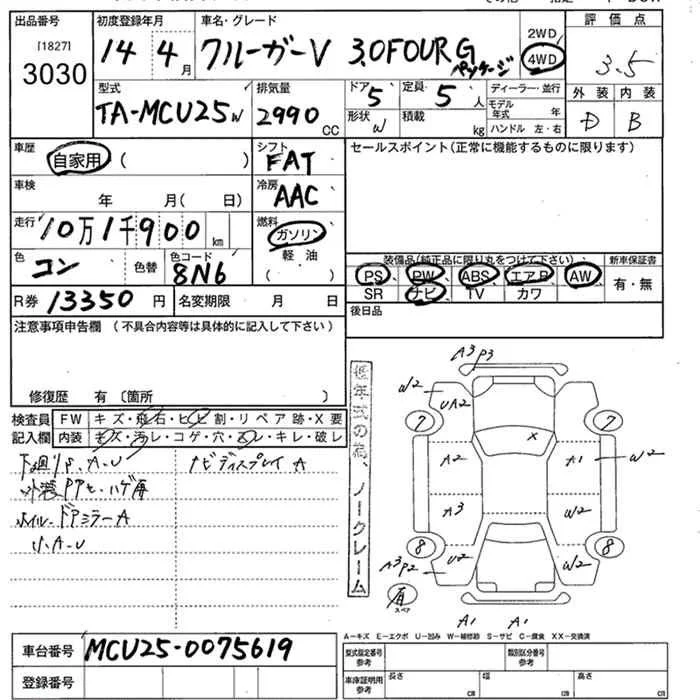 出品番号
[1827]
3030
初度登録年月
14 4月
車名・グレード
クルーガーV 3.0FOUR G
パッケージ
2WD
4WD
評価点
3.5
外装 内装
D B
型式
TA-MCU25W
排気量
2990 CC
ドア 5
形状 W
定員 5 人
積載 kg
ディーラー・並行
モデル年式 年
ハンドル 左・右
車歴
自家用 ( )
シフト
FAT
セールスポイント(正常に機能するものに限ります)
車検 年 月( 日)
冷房
AAC
走行
10万1千900 km
燃料
ガソリン
軽油
( )
色
コン
色替
色コード
8N6
装備品(純正品に限り丸をつけて下さい)
新車保証書
PS PW ABS エアB AW
SR ナビ TV カワ
有・無
R券 13350 円
名変期限 月 日
後日品
注意事項申告欄 (不具合内容等は具体的に記入して下さい)
修復歴 有 〔箇所 〕
検査員
記入欄
FW キズ・飛石・ヒビ割・リペア跡・X要
内装 キズ・汚レ・コゲ・穴・スレ・キレ・破レ
A-U
ナビディスプレイ A
ドアミラーA
小A-U
低年式の為、ノークレーム
A3 P3
W2
UA2
7
7
X
A2
A1
W2
A3
W2
8
8
A3P2
U2
W2
スペア
A1 A1
A-キズ E-エクボ U-凹み W-補修跡 S-サビ C-腐食 XX-交換済
車台番号
MCU25-0075619
登録番号
型式指定番号
参考
類別区分番号
参考
車庫証明用
参考
長さ cm
幅 cm
高さ cm